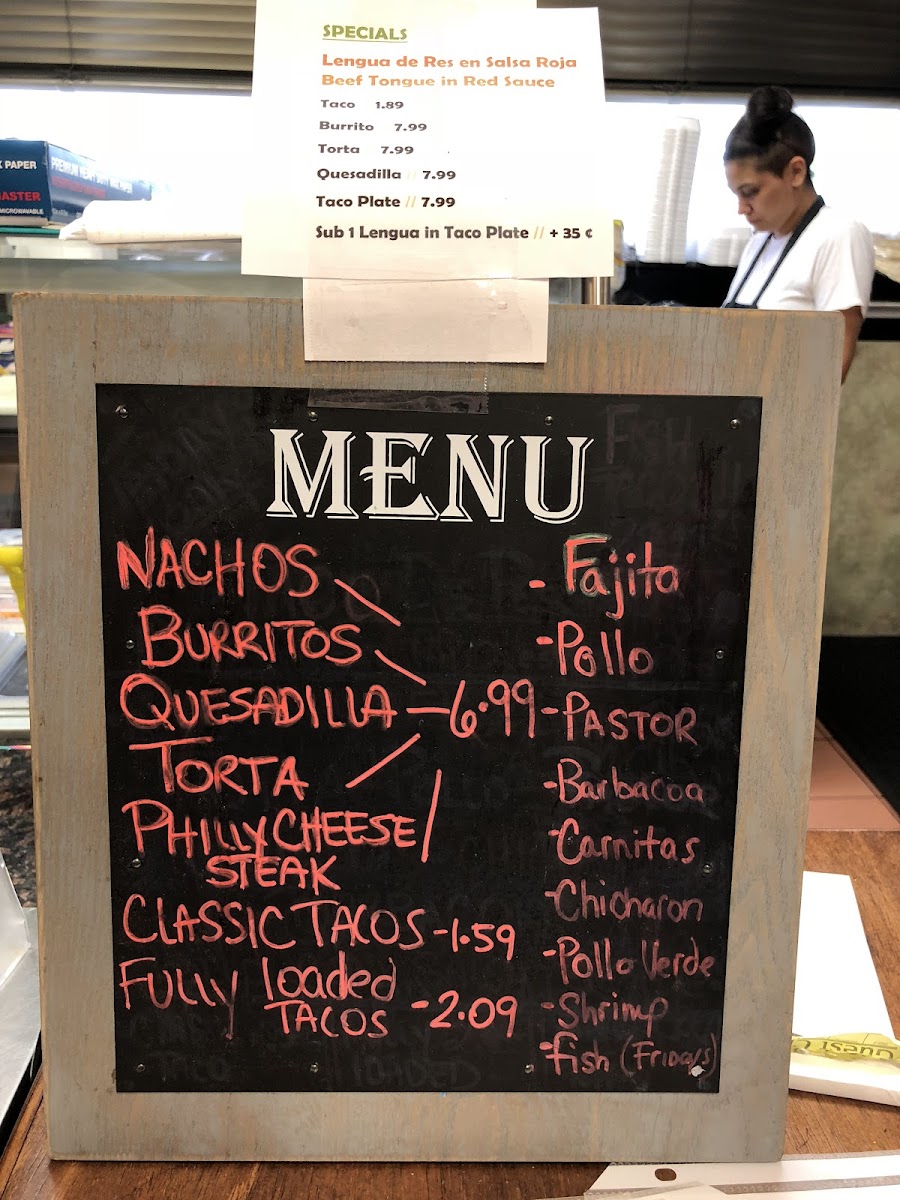 SPECIALS
Lengua de Res en Salsa Roja
Beef Tongue in Red Sauce
Taco 1.89
Burrito 7.99
Torta 7.99
Quesadilla // 7.99
Taco Plate // 7.99
Sub 1 Lengua in Taco Plate // + 35 ¢
PAPER
MASTER
MICROWAVABLE
PREMIUM HEAVY
MENU
NACHOS
BURRITOS
QUESADILLA - 6.99
TORTA
PHILLY CHEESE
STEAK
CLASSIC TACOS - 1.59
FULLY loaded
TACOS - 2.09
- Fajita
- Pollo
- PASTOR
- Barbacoa
- Carnitas
- Chicharon
- Pollo Verde
- Shrimp
- Fish (Fridays)
Guest